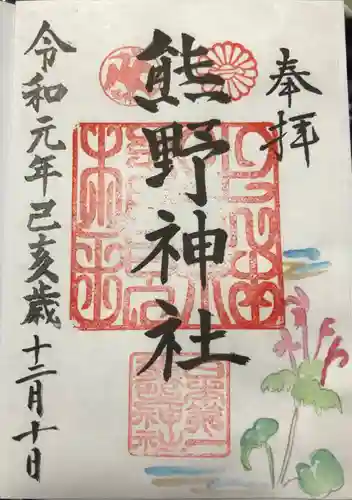 奉拝
熊野神社
令和元年己亥歳十二月十日